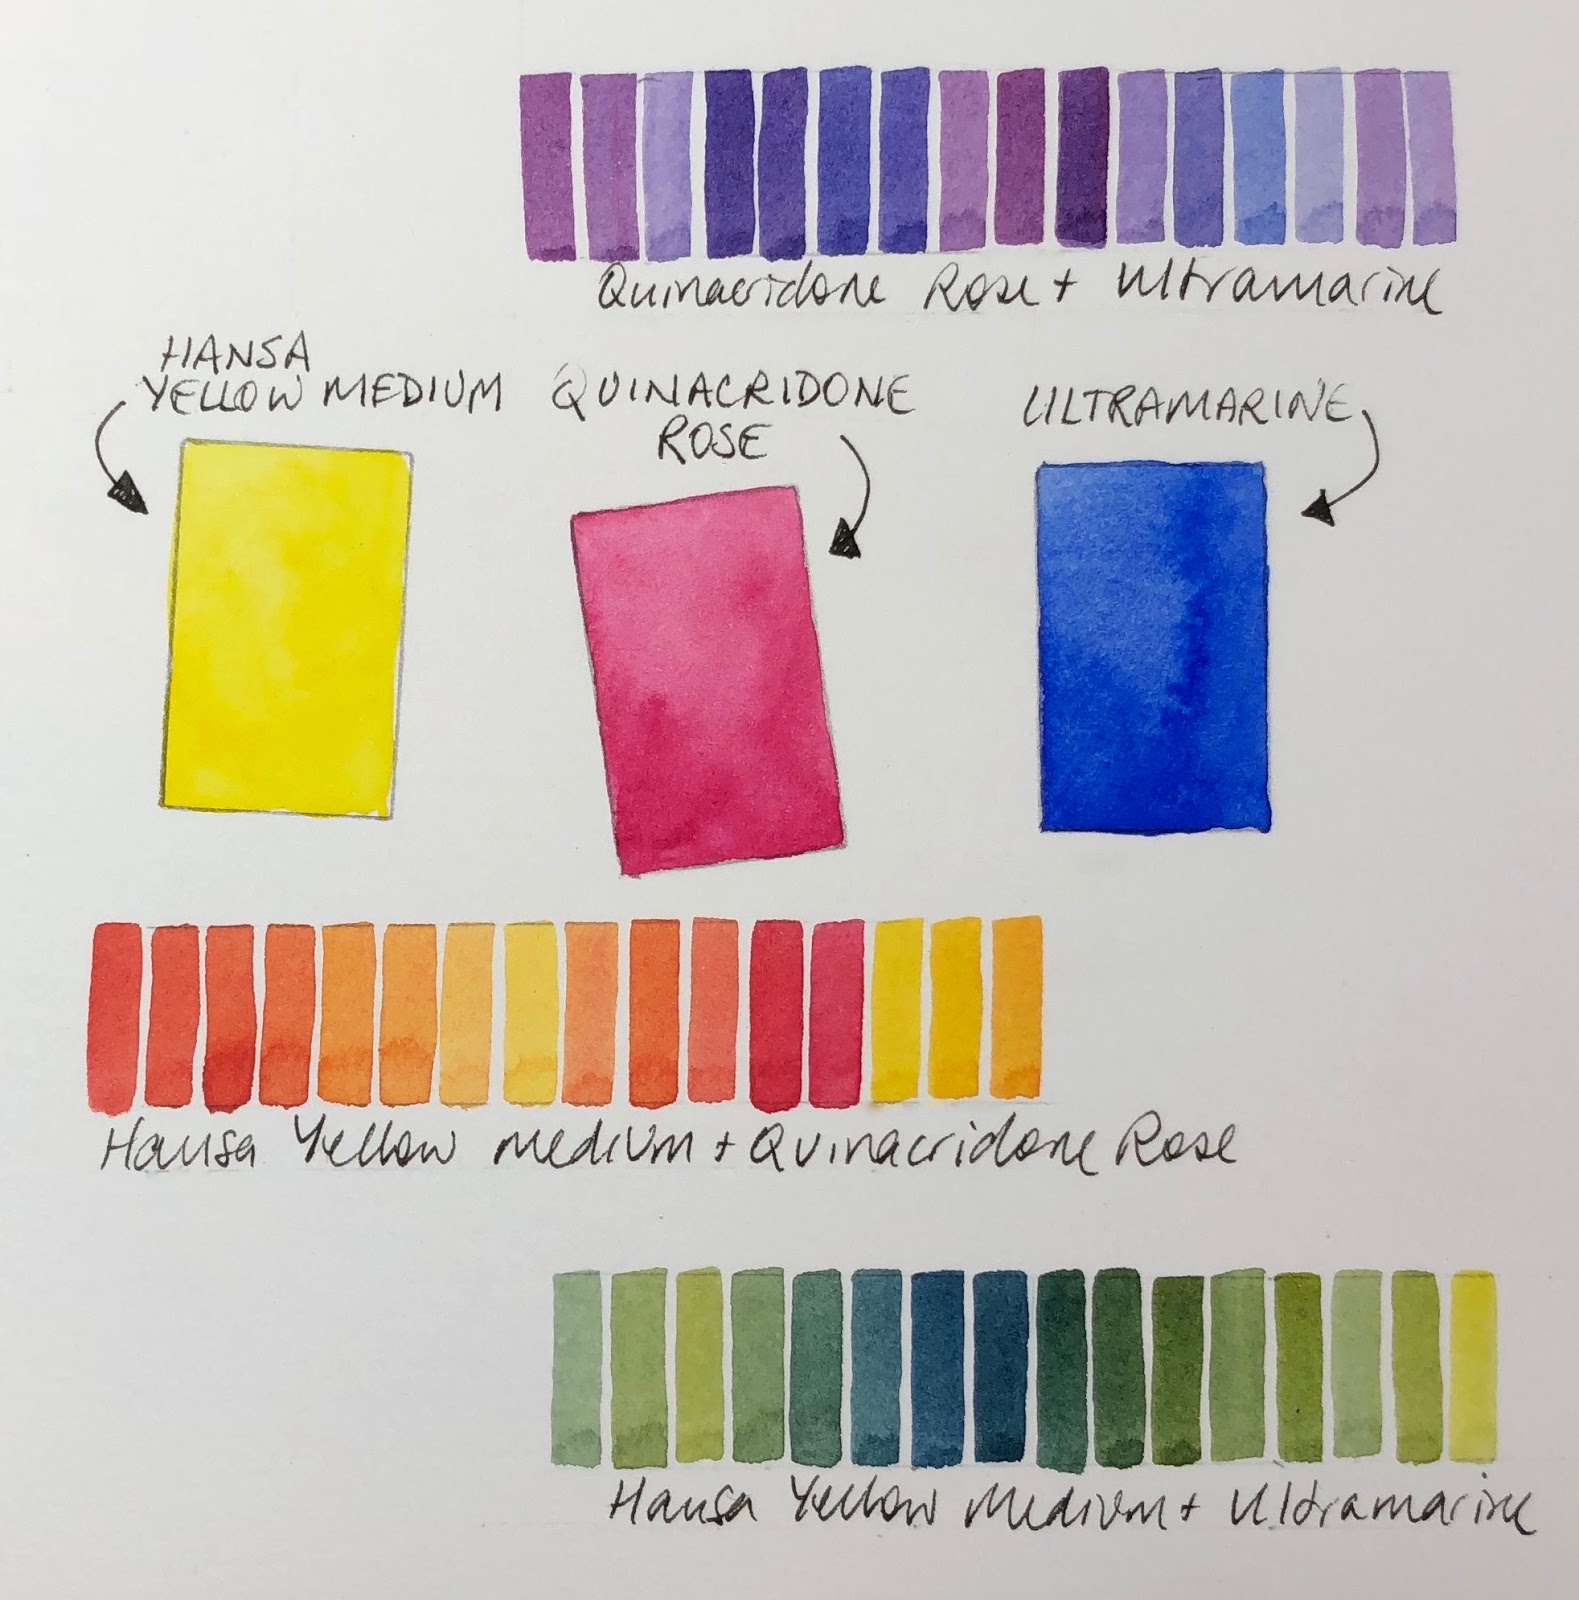 Quinacridone Rose + Ultramarine
HANSA
YELLOW MEDIUM
QUINACRIDONE
ROSE
ULTRAMARINE
Hansa Yellow Medium + Quinacridone Rose
Hansa Yellow Medium + Ultramarine